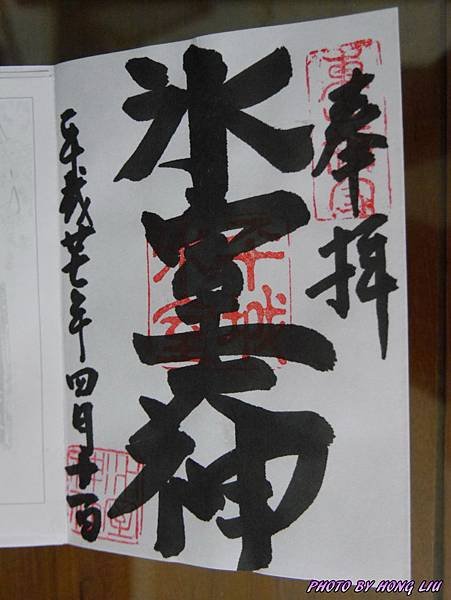 奉拝
氷室神
平城
氷室
平成廿七年四月十一日
PHOTO BY HONG LIU